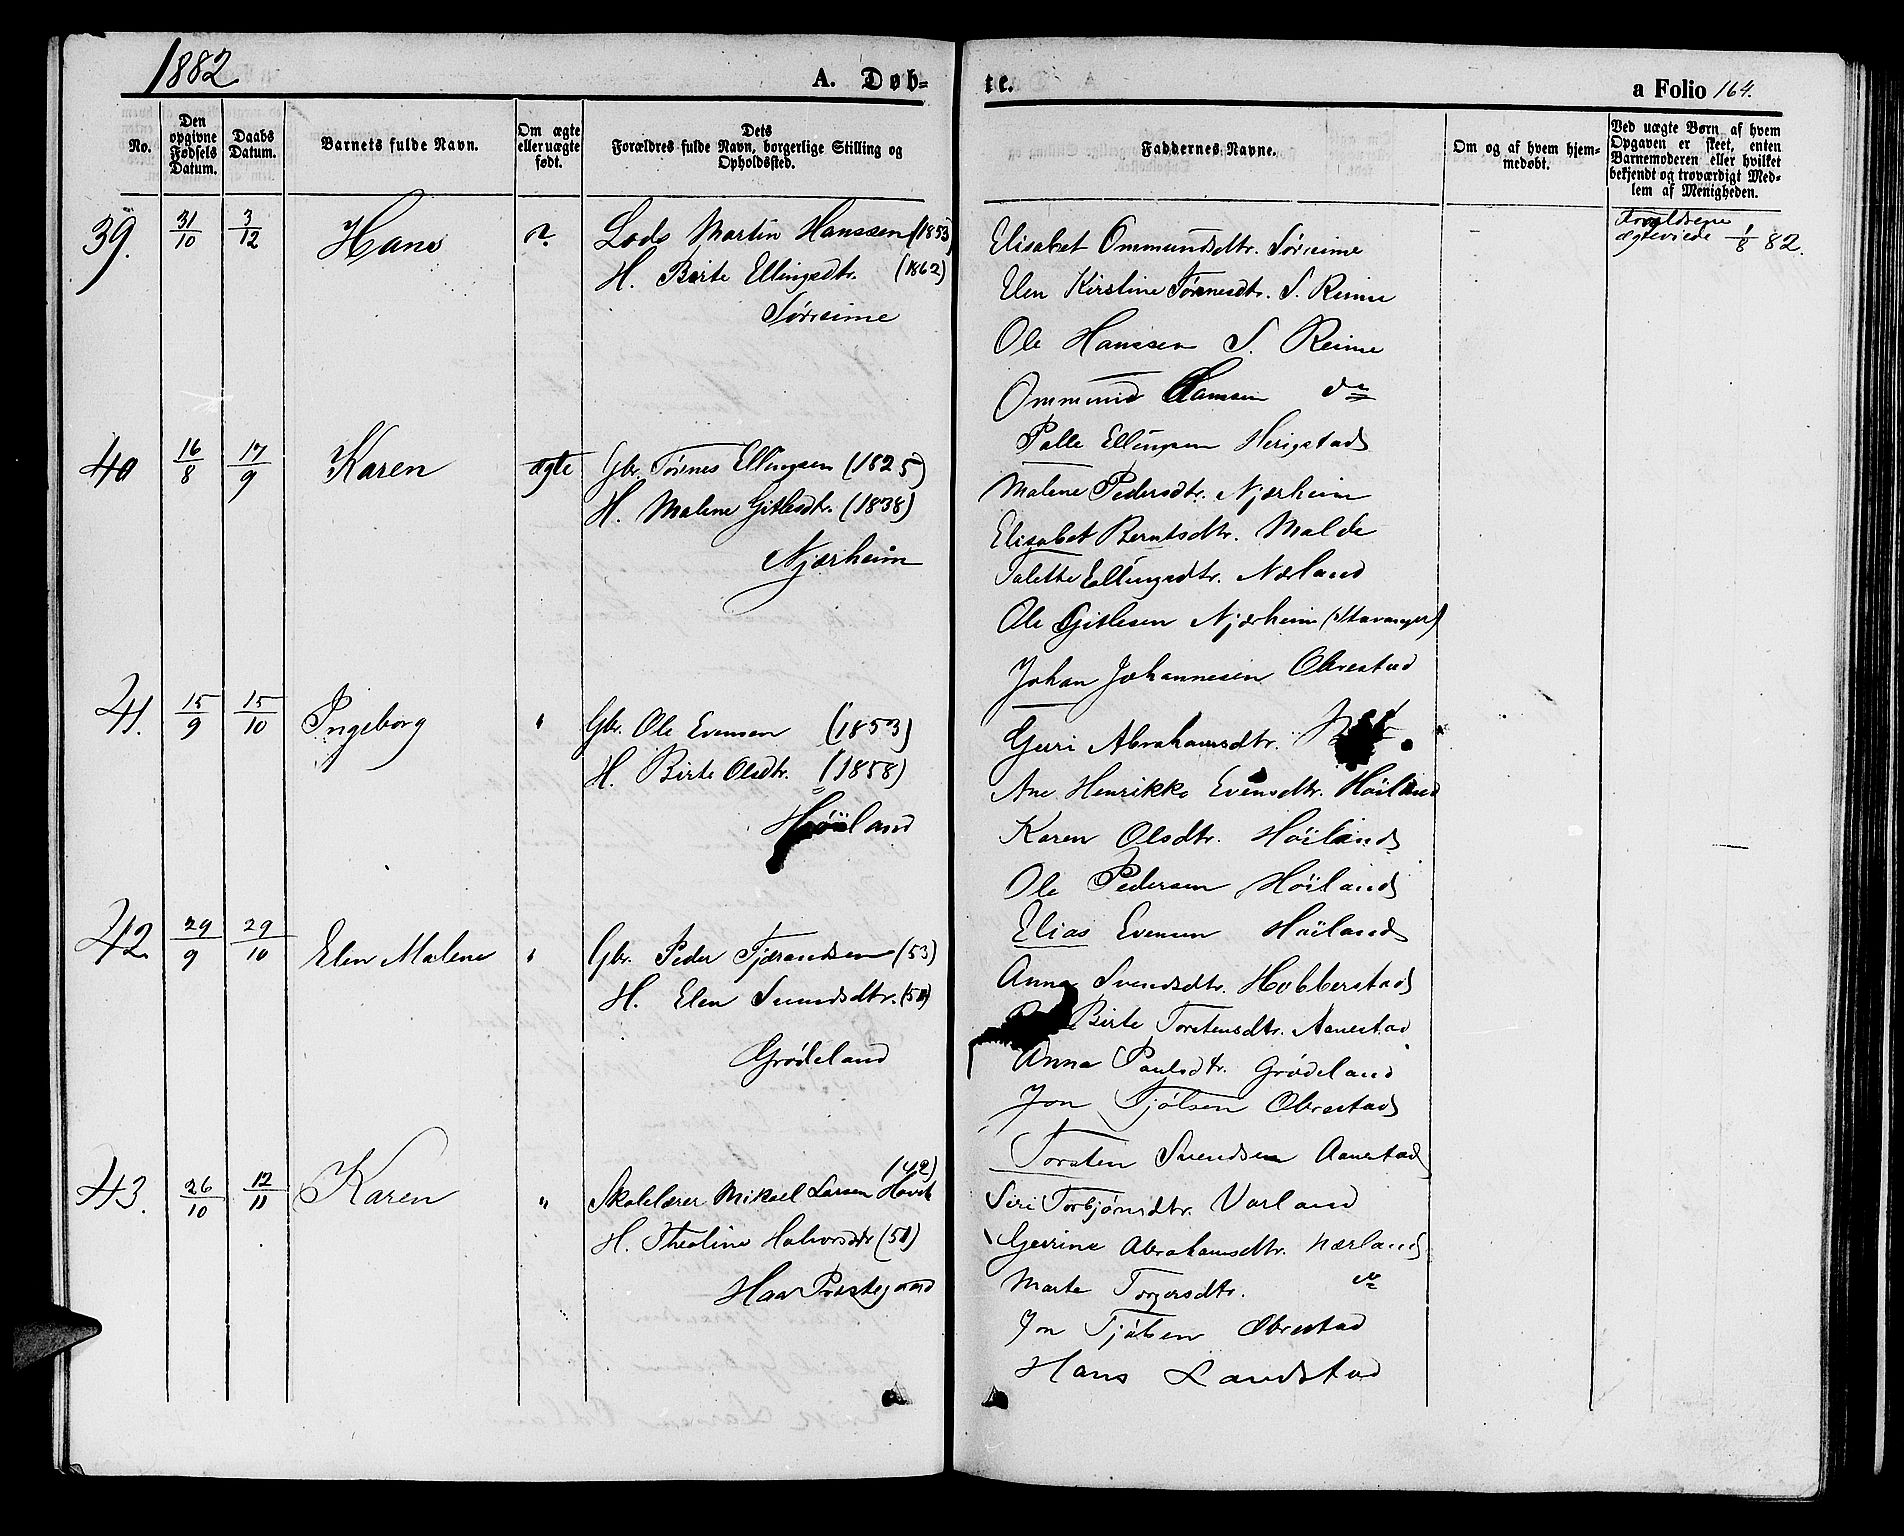 1882
A. Døb-
te.
a Folio 164.
No.
Den opgivne Fødsels Datum.
Daabs Datum.
Barnets fulde Navn.
Om ægte eller uægte født.
Dets Forældres fulde Navn, borgerlige Stilling og Opholdssted.
Faddernes Navne.
Om og af hvem hjemmedøbt.
Ved uægte Børn af hvem Opgaven er skeet, enten Barnemoderen eller hvilket bekjendt og troværdigt Medlem af Menigheden.
39. 31/10 3/12 Hans
Lods Martin Hanssen (1853)
H. Birte Ellingsdtr. (1862)
Sørreime
Elisabet Ommundsdtr. Sørreime
Elen Kirstine Tønnesdtr. S. Reime
Ole Hanssen S. Reime
Ommund Hanssen do
Palle Ellingsen Herigstad
Forældrene
ægteviede 1/8 82.
40 16/8 17/9 Karen ægte
Gbr. Tønnes Ellingsen (1825)
H. Malene Gitlesdtr. (1838)
Njærheim
Malene Pedersdtr. Njærheim
Elisabet Berntsdtr. Malde
Talette Ellingsdtr. Nærland
Ole Gitlesen Njærheim (Stavanger)
Johan Johannesen Obrestad
41. 15/9 15/10 Ingeborg "
Gbr. Ole Evensen (1853)
H. Birte Olsdtr. (1858)
Høiland
Guri Abrahamsdtr.
Ane Henrikke Evensdtr. Høiland
Karen Olsdtr. Høiland
Ole Pedersen Høiland
Elias Evensen Høiland
42. 29/9 29/10 Elen Malene "
Gbr. Peder Tjærandsen (53)
H. Elen Svendsdtr.
Grødeland
Anna Svendsdtr. Hobberstad
Birte Torstensdtr. Aanestad
Anna Paulsdtr. Grødeland
Jon Tjølsen Obrestad
Torsten Svendsen Aanestad
43. 26/10 12/11 Karen "
(42)
Skolelærer Mikael Larsen Havik
H. Theoline Halvorsdtr (51)
Haa Præstegaard
Siri Torbjørnsdtr. Varland
Gerrine Abrahamsdtr. Nærland
Marte Torgersdtr. do
Jon Tjølsen Obrestad
Hans Landstad